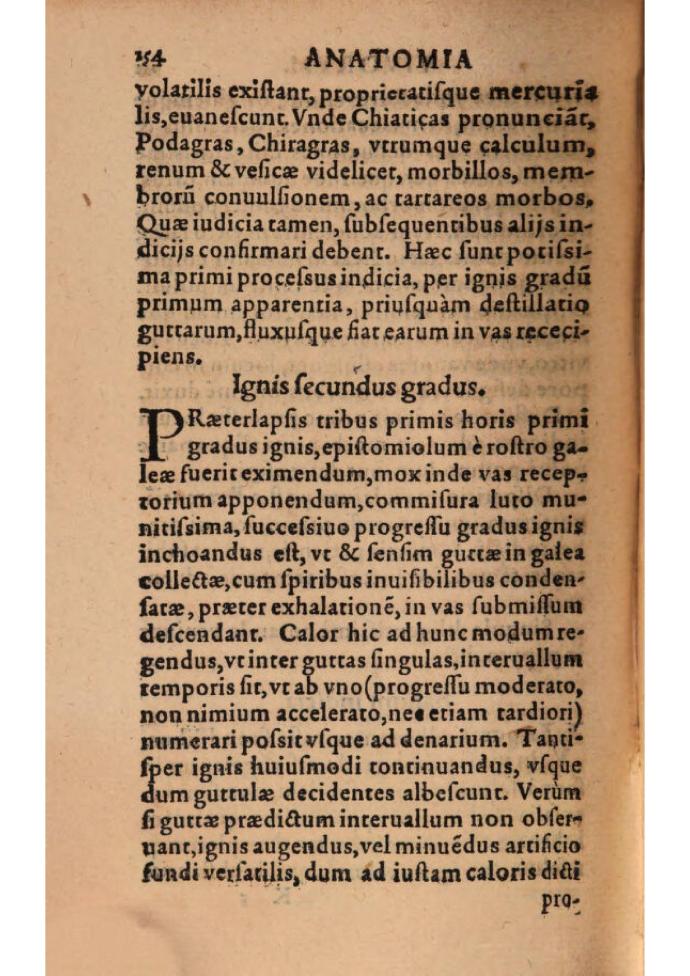 254 ANATOMIA
volatilis exiſtant, proprietatiſque mercuriã
lis, euaneſcunt. Vnde Chiaticas pronunciãt,
Podagras, Chiragras, vtrumque calculum,
renum & veſicæ videlicet, morbillos, mem-
brorũ conuulſionem, ac tartareos morbos.
Quæ iudicia tamen, ſubſequentibus alijs in-
dicijs confirmari debent. Hæc ſunt potiſsi-
ma primi proceſſus indicia, per ignis gradũ
primum apparentia, priuſquàm deſtillatio
guttarum, fluxuſque fiat earum in vas receci-
piens.
Ignis ſecundus gradus.
PRæterlapſis tribus primis horis primi
gradus ignis, epiſtomiolum è roſtro ga-
leæ fuerit eximendum, mox inde vas recep-
torium apponendum, commiſura luto mu-
nitiſsima, ſucceſsiuo progreſſu gradus ignis
inchoandus eſt, vt & ſenſim guttæ in galea
collectæ, cum ſpiribus inuiſibilibus conden-
ſatæ, præter exhalationẽ, in vas ſubmiſſum
deſcendant. Calor hic ad hunc modum re-
gendus, vt inter guttas ſingulas, interuallum
temporis ſit, vt ab vno (progreſſu moderato,
non nimium accelerato, nec etiam tardiori)
numerari poſsit vſque ad denarium. Tanti-
ſper ignis huiuſmodi continuandus, vſque
dum guttulæ decidentes albeſcunt. Verùm
ſi guttæ prædictum interuallum non obſer-
uant, ignis augendus, vel minuẽdus artificio
fundi verſatilis, dum ad iuſtam caloris dicti
pro-